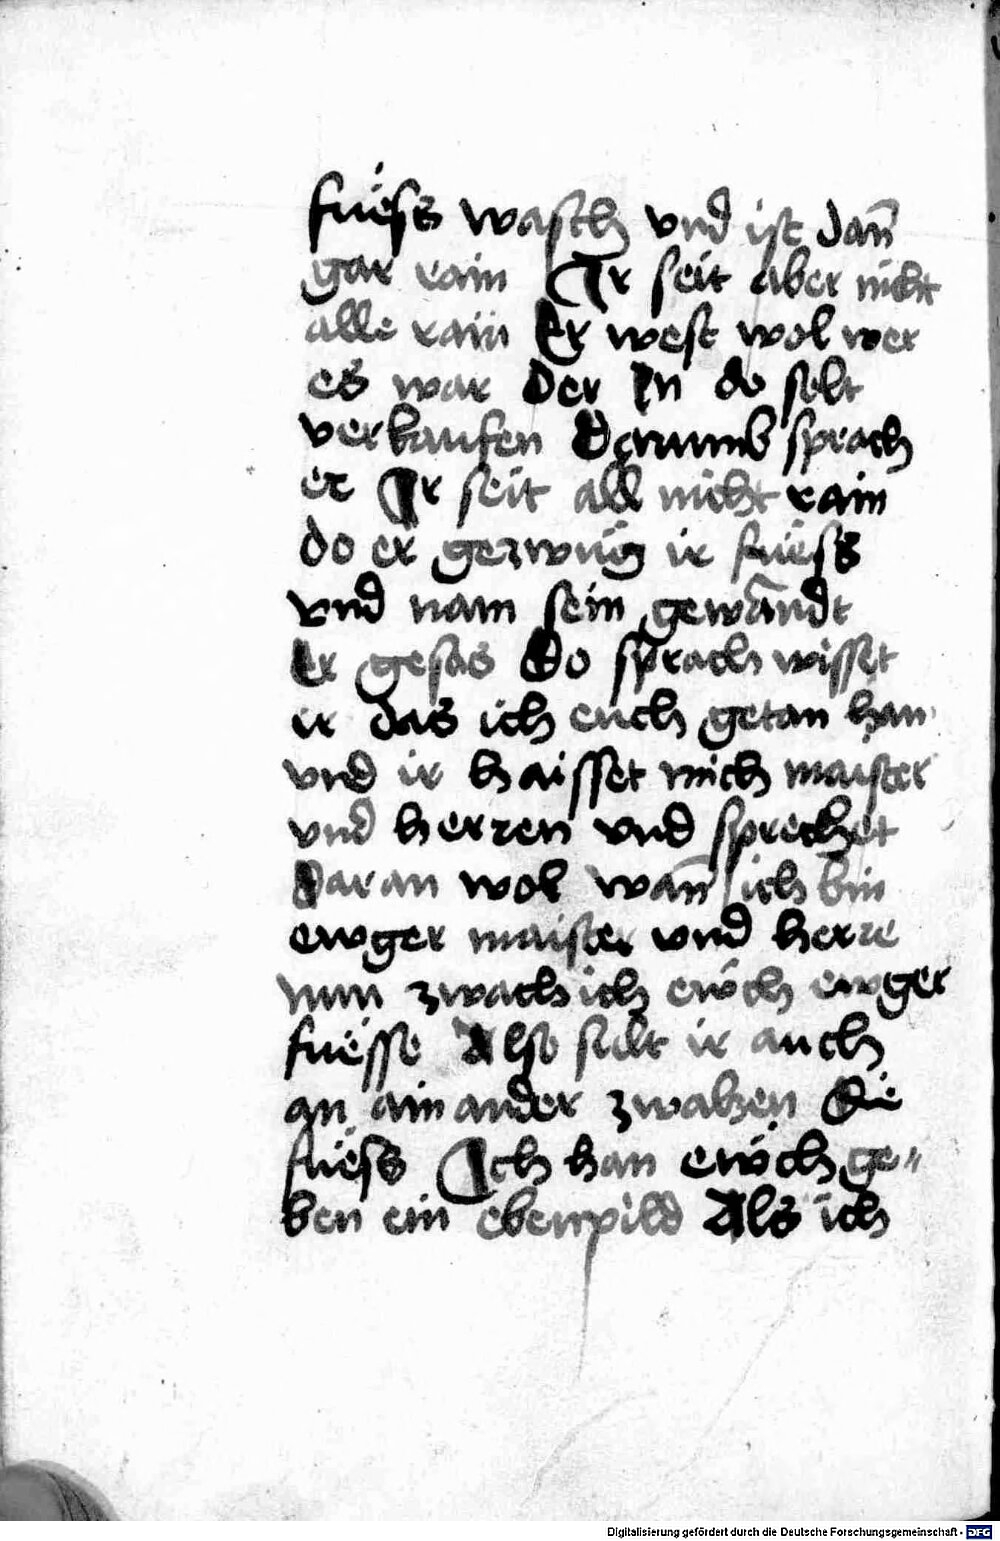 fuëss wasch vnd ist dan̄
gar rain Ir seit aber nicht
alle rain Er west wol wer
es war Der In do solt
verkaufen Darumb sprach
er Ir seit all nicht rain
do er gezwug ir fuëss
vnd nam sein gewandt
Er gesas Do sprach wisset
ir das ich euch getan han
vnd ir haisset mich maister
vnd herren vnd sprechet
Daran wol wan̄ ich bin
ewger maister vnd herre
nun zwach ich ewch ewger
fuësse Also sult ir auch
an ain ander zwahen Die
fuëss Ich han ewch ge〃
ben ein ebenpild Als ich
Digitalisierung gefördert durch die Deutsche Forschungsgemeinschaft - DFG